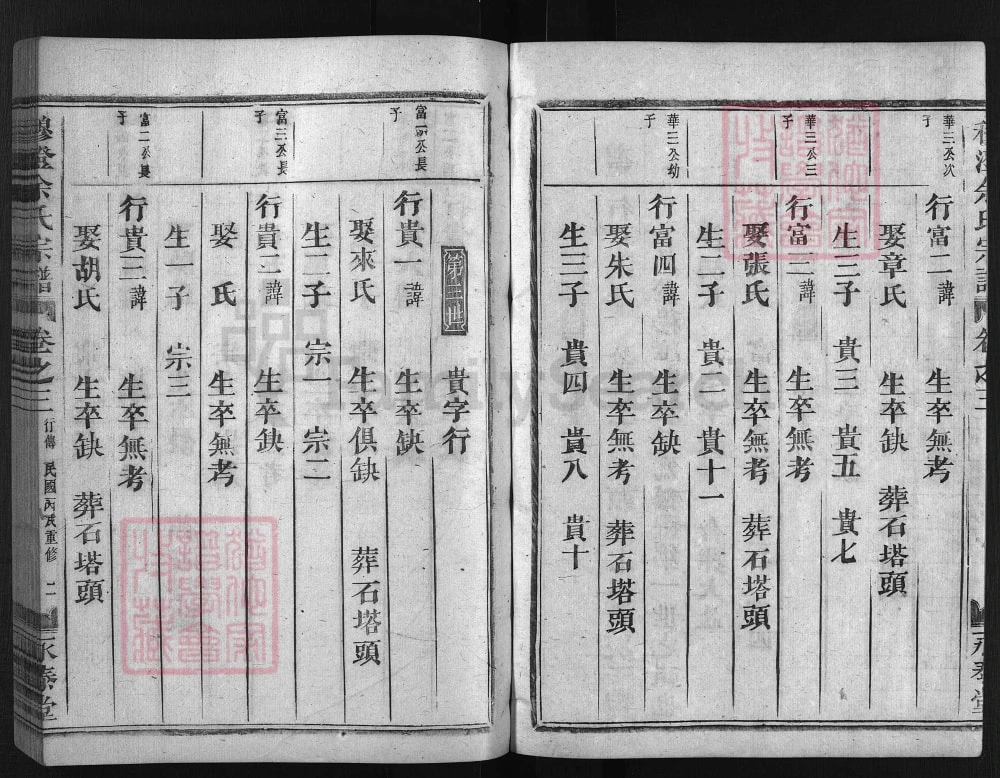 華三公次子
行富二諱 生卒無考
娶章氏 生卒缺 葬石塔頭
生三子 貴三 貴五 貴七
華三公三子
行富三諱 生卒無考
娶張氏 生卒無考 葬石塔頭
生二子 貴二 貴十一
華三公幼子
行富四諱 生卒缺
娶朱氏 生卒無考 葬石塔頭
生三子 貴四 貴八 貴十
永泰堂
第三世 貴字行
富一公長子
行貴一諱 生卒缺
娶來氏 生卒俱缺 葬石塔頭
生二子 宗一 宗二
富三公長子
行貴二諱 生卒缺
娶 氏 生卒無考
生一子 宗三
富二公長子
行貴三諱 生卒無考
娶胡氏 生卒缺 葬石塔頭
余氏宗譜 卷之二 行傳 民國丙戌重修 二 永泰堂
FamilySearch